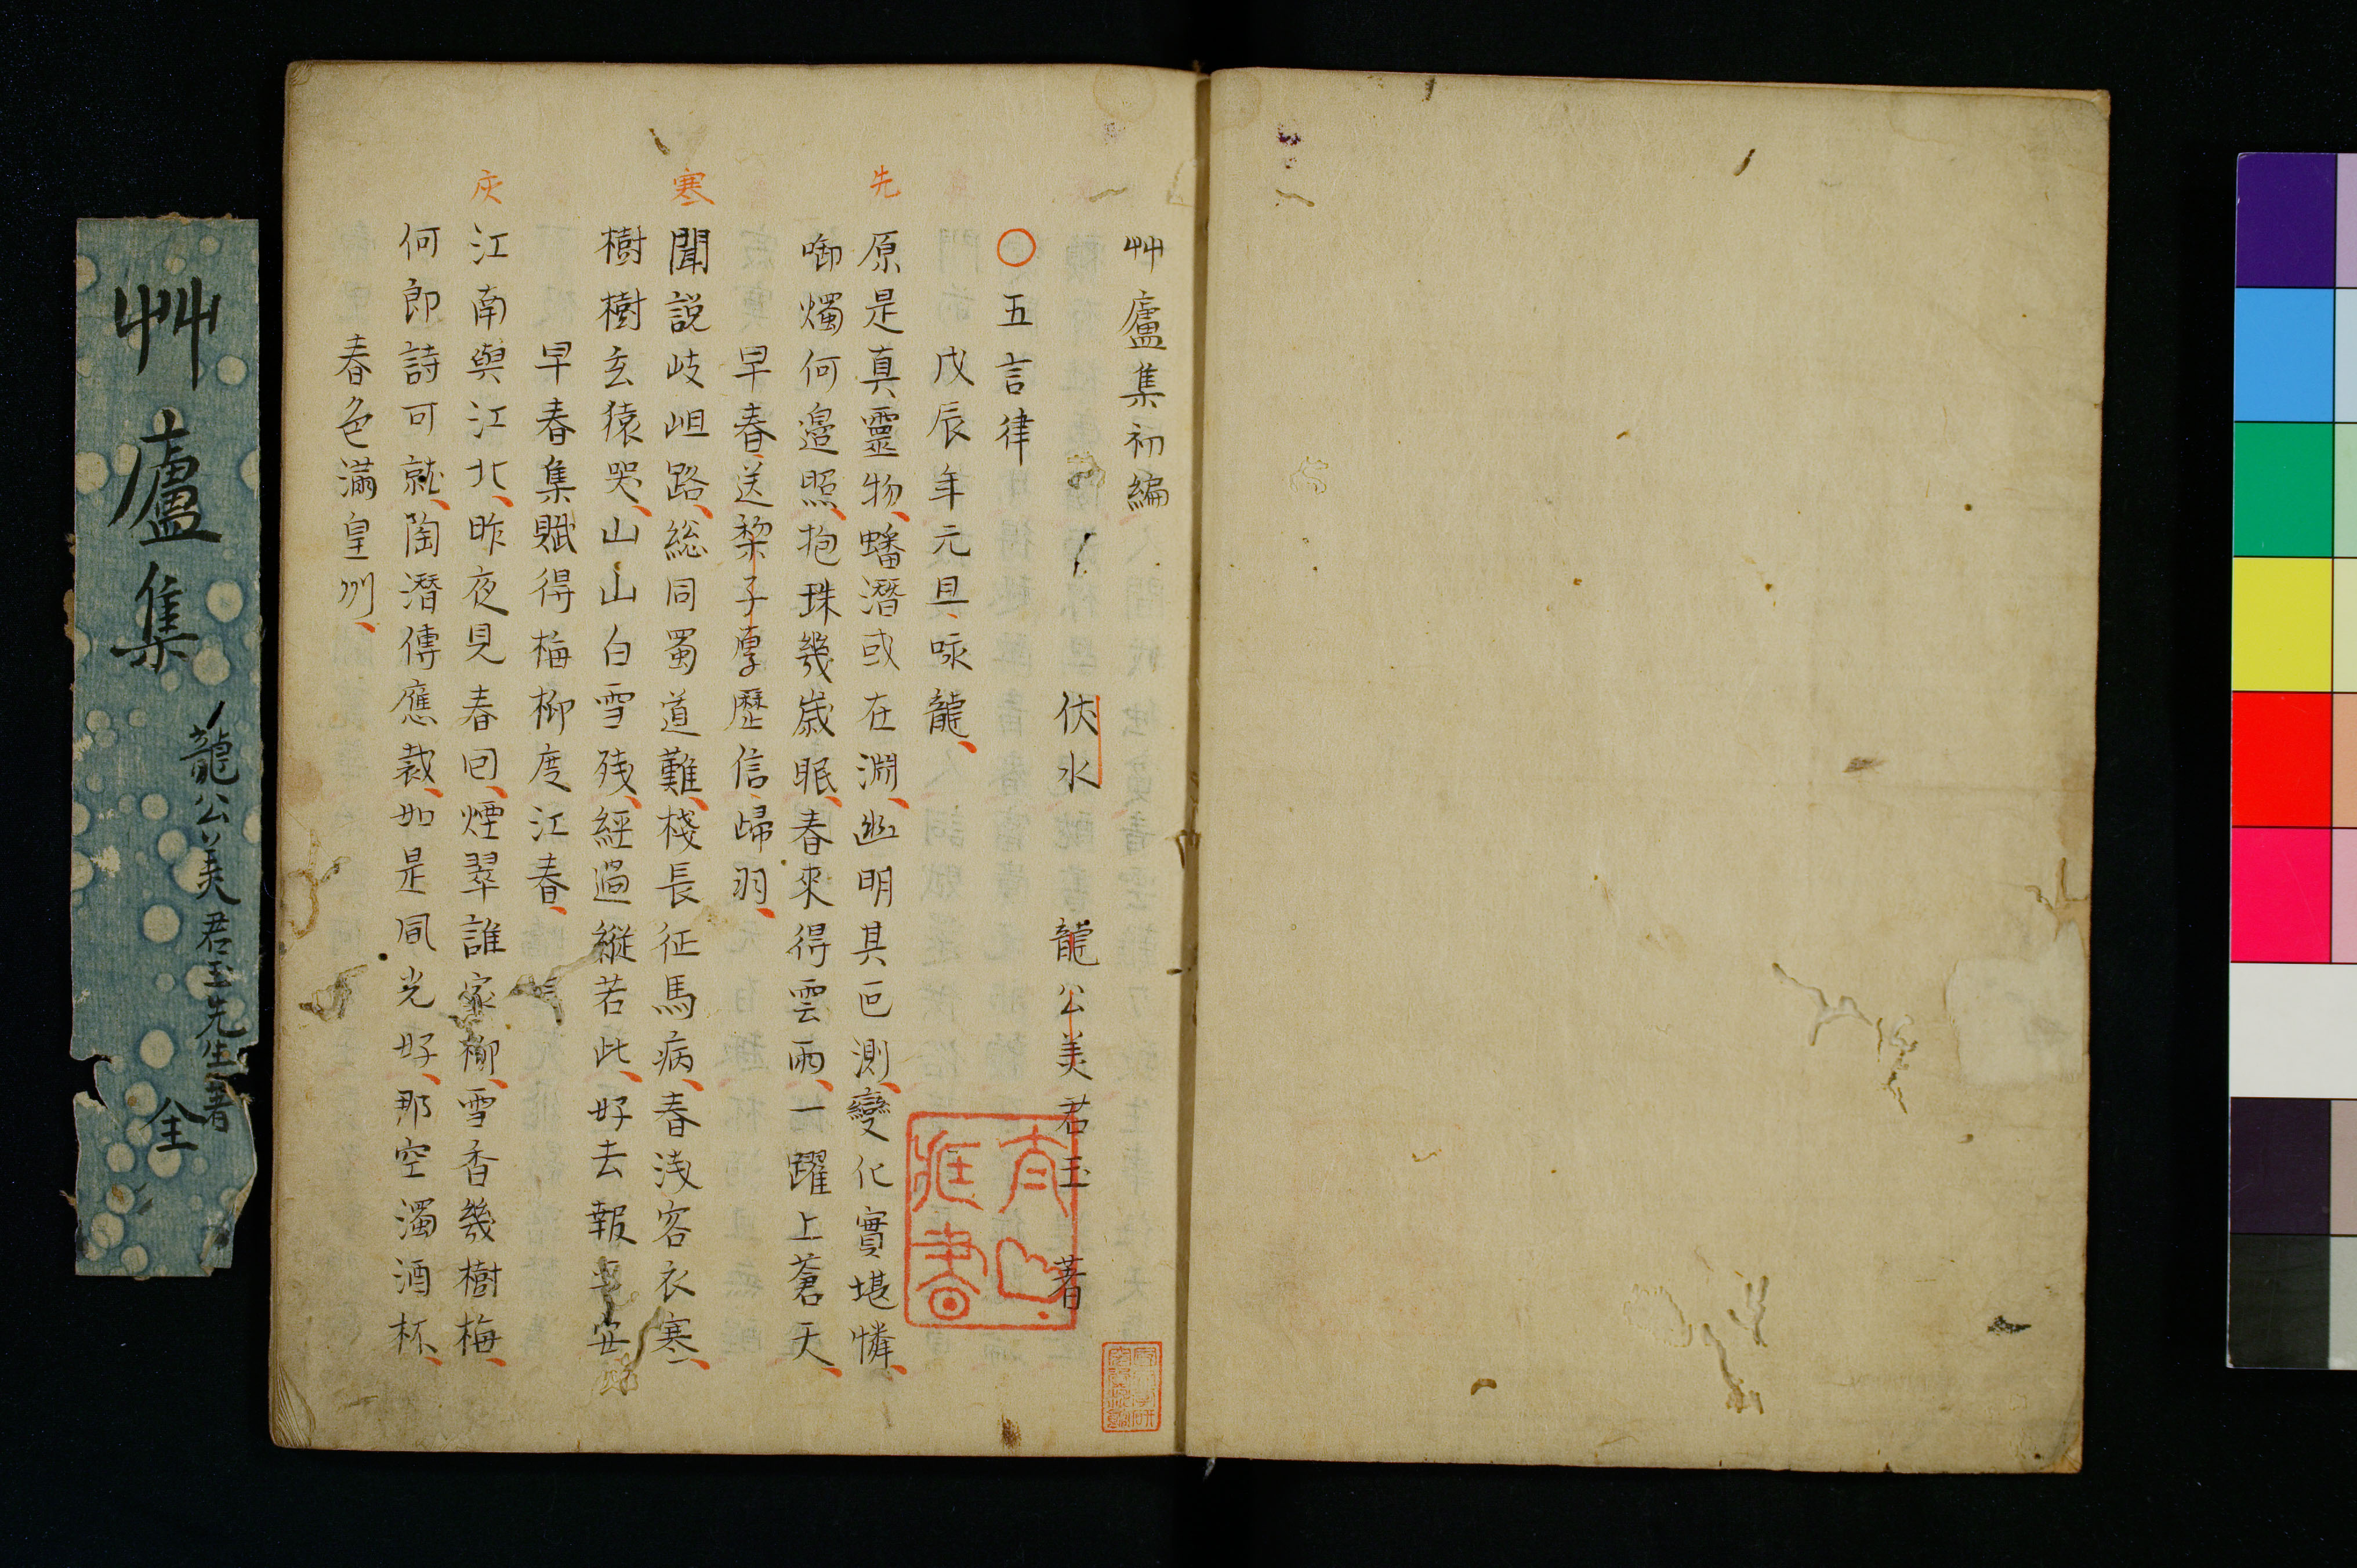 艸廬集初編
伏水 龍公美君玉著
五言律
戊辰年元旦咏龍
先
原是真靈物蟠潛或在淵幽明其叵測變化實堪憐
啣燭何邉照抱珠幾歳眠春來得雲雨一躍上蒼天
早春送棃子厚歴信歸羽
寒
聞説岐岨路総同蜀道難棧長征馬病春浅容衣寒
樹樹玄猿哭山山白雪残經過縱若此好去報平安
早春集賦得梅柳度江春
灰
江南與江北昨夜見春回煙翠誰家柳雪香幾樹梅
何郎詩可就陶潛傳應裁如是風光好那空濁酒杯
春色滿皇州
艸廬集
龍公美君玉先生著
全